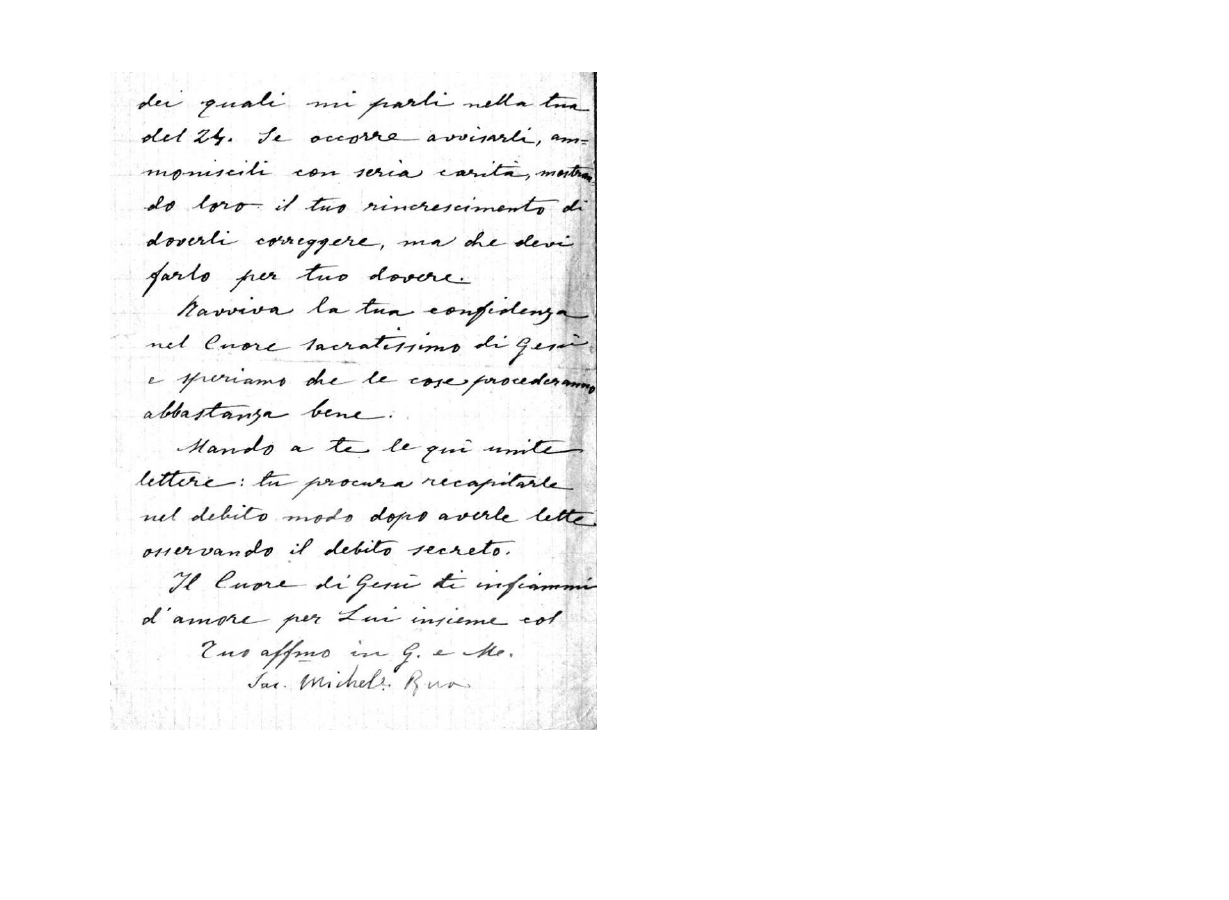 dei quali mi parli nella tua
del 24. Se occorre avvisarli, am=
moniscili con seria carità, mostran-
do loro il tuo rincrescimento di
doverli correggere, ma che devi
farlo per tuo dovere.
Ravviva la tua confidenza
nel Cuore sacratissimo di Gesù
e speriamo che le cose procederanno
abbastanza bene.
Mando a te le quì unite
lettere: tu procura recapitarle
nel debito modo dopo averle lette
osservando il debito secreto.
Il Cuore di Gesù ti infiammi
d'amore per Lui insieme col
Tuo affmo in G. e M.
Sac. Michele Rua